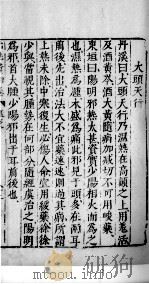 大頭天行
丹溪曰大頭天行乃濕熱在高巔之上用羗活
及酒黃芩酒大黃隨病加減切不可用峻藥
東垣曰陽明邪熱太甚資實少陽相火而爲之
也濕熱爲腫木盛爲痛此邪見于頭多在兩耳
前後先出治法大不宜藥速速則過其病所謂
上熱未除中寒復生必傷人命宜用緩藥徐徐
少與當視其腫勢在何部分隨經處治之陽明
爲邪首大腫少陽邪出于耳前後也